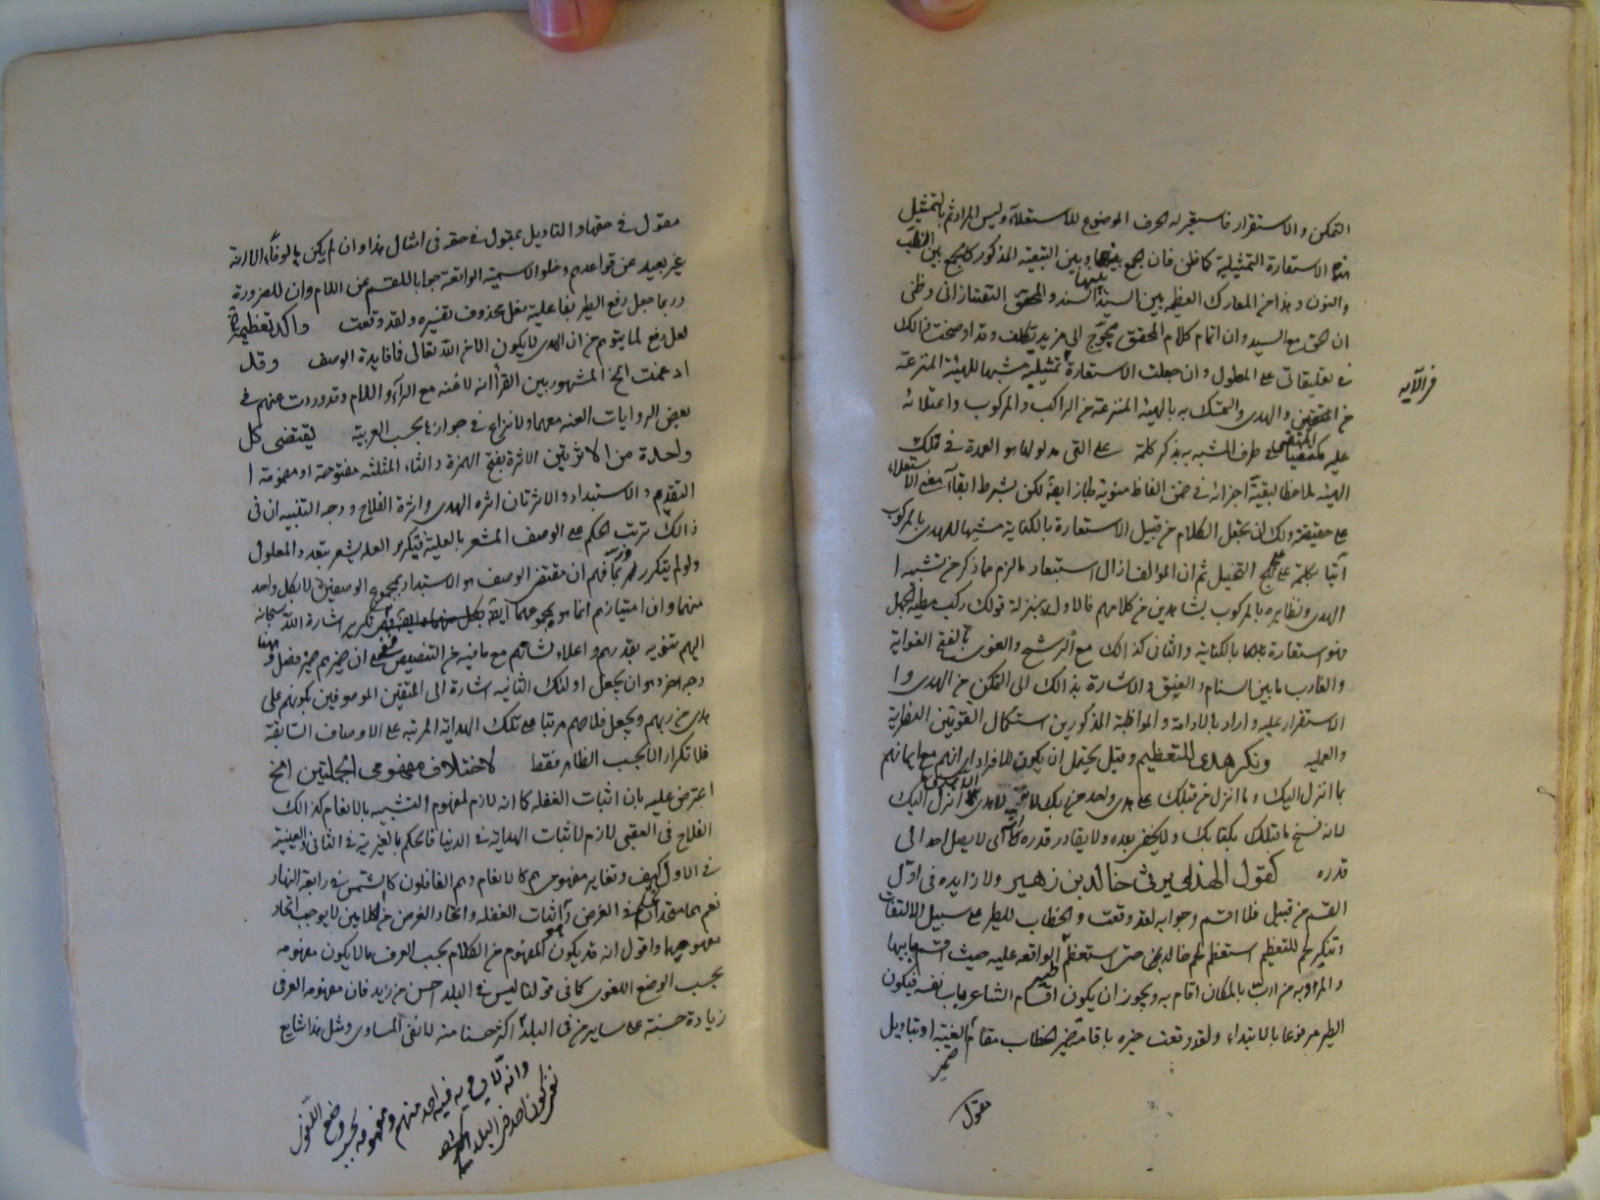 التمكن والاستقرار فاستعير له الحرف الموضوع للاستعلاء وليس المراد ثم بالتمثيل
هنا الاستعارة التمثيلية كما ظن فان الجمع بينها وبين التبعية المذكور كالجمع بين الضب
والنون وهذا من المعارك العظيمة بين السيد السند والمحقق التفتازاني وظني
ان الحق مع السيد وان اتمام كلام المحقق محوج الى مزيد تكلف وقد اوضحت ذالك
في تعليقاتي على المطول وان جعلت الاستعارة تمثيلية مشبها للهيئة المنتزعة
من المتقين والهدى والتمسك به بالهيئة المنتزعة من الراكب والمركوب واعتلائه
عليه مكتفيا في طرف المشبه به بذكر كلمة على التي مدلولها هو العمدة في تلك
الهيئة ملاحظا لبقية اجزائه في ضمن الفاظ منوية جاز ايضا لكن بشرط ابقاء معنى الاستعلاء
على حقيقته ولك ان تجعل الكلام من قبيل الاستعارة بالكناية مشبها للهدى بالمركوب
آتيا بكلمة على التخيل ثم ان المؤلف ازال استبعاد ما لزم مما ذكر من تشبيه ا
الهدى ونظايره بالمركوب بشاهدين من كلامهم فالاول بمنزلة قولك ركب مطية الجهل
فهو استعارة بالكناية والثاني كذالك مع الترشيح والغوى بالفتح الغواية
والغارب ما بين السنام والعنق والاشارة بذالك الى التمكن من الهدى وا
الاستقرار عليه واراد بالادامة والمواظبة المذكورين استكمال القوتين النظرية
والعملية ونكر هدى للتعظيم وقيل يحتمل ان يكون للافراد اي انهم مع ايمانهم
بما انزل اليك وما انزل من قبلك على هدى واحد من ربك انزل اليك
لانه نسخ ما قبلك بكتابك ولا يقادر قدره اي لا يصل احد الى
قدره كقول الهذلي يرثي خالد بن زهير ولا زايده في اول
القسم من قبيل فلا اقسم وجوابه لقد وقعت والخطاب للطير على سبيل الالتفات
وتنكير لحم للتعظيم استعظم لحم خالد حتى استعظم الواقعة عليه حيث اقسم بابيها
والمربة من ارب بالمكان اقام به ويجوز ان يكون اقسام الشاعر باب نفسه فيكون
الطير مرفوعا بالابتداء ولقد وقعت خبره باقامة ضمير الخطاب مقام الغيبة او بتاويل
ضمير
مقول
من الآية
مقول في حقها والتاويل بمقول في حقه في امثال هذا وان لم يكن مالوفا الا انه
غير بعيد عن قواعدهم وخلو الاسمية الواقعة جوابا للقسم عن اللام وان للضرورة
وربما جعل رفع الطير بفاعلية فعل محذوف تفسيره ولقد وقعت واكد تعظيمه
لعل دفع لما يتوهم من ان الهدى لا يكون الا من الله تعالى فما فايدة الوصف وقد
ادغمت الخ المشهور بين القراء انه لا غنه مع الراء واللام وقد وردت عنهم في
بعض الروايات الغنه معهما ولا نزاع في جوازها بحسب العربية يقتضي كل
واحدة من الاثرتين الاثرة بفتح الهمزة والثاء المثلثه مفتوحة او مضمومة ا
التقدم والاستبداد والاثرتان اثره الهدى واثرة الفلاح ووجه التنبيه ان في
ذالك ترتب الحكم على الوصف المشعر بالعلية فتكرير العلة يشعر بتعدد المعلول
ولو لم يتكرر ربما فهم ان مقتضى الوصف هو الاستبداد بمجموع الوصفين لا بكل واحد
منهما وان امتيازهم انما هو بمجموعهما تكرير اشارة الله سبحانه
اليهم تنويه بقدرهم واعلاء لشانهم مع ما فيه من التنصيص على ان ضميرهم ضمير فصل وههنا
وجه آخر هو ان يجعل اولئك الثانية اشارة الى المتقين الموصوفين بكونهم على
هدى من ربهم ويجعل فلاحهم مرتبا على تلك الهداية المرتبه على الاوصاف السابقة
فلا تكرار الا بحسب الظاهر فقط لاختلاف مفهومي الجملتين الخ
اعترض عليه بان اثبات الغفلة كما انه لازم لمفهوم التشبيه بالانعام كذالك
الفلاح في العقبى لازم لاثبات الهداية في الدنيا فالحكم بالغيرية في الثاني والعينية
في الاول كيف وتغاير مفهومي هم كالانعام وهم الغافلون كالشمس في رابعة النهار
نعم هما متحدان في الغرض واثبات الغفلة واتحاد الغرض من كلامين لا يوجب اتحاد
مفهوميهما واقول انه قد يكون المفهوم من الكلام بحسب العرف ما لا يكون مفهومه
بحسب الوضع اللغوي كما في قولنا ليس في البلد احسن من زيد فان مفهومه العرفي
زيادة حسنه على ساير من في البلد اكثر حسنا منه لا نفي المساوي ومثل هذا شايع
وانه لا يساويه فيه احد منهم ومفهومه بحسب وضع اللغوي
نفي كون احد في البلد